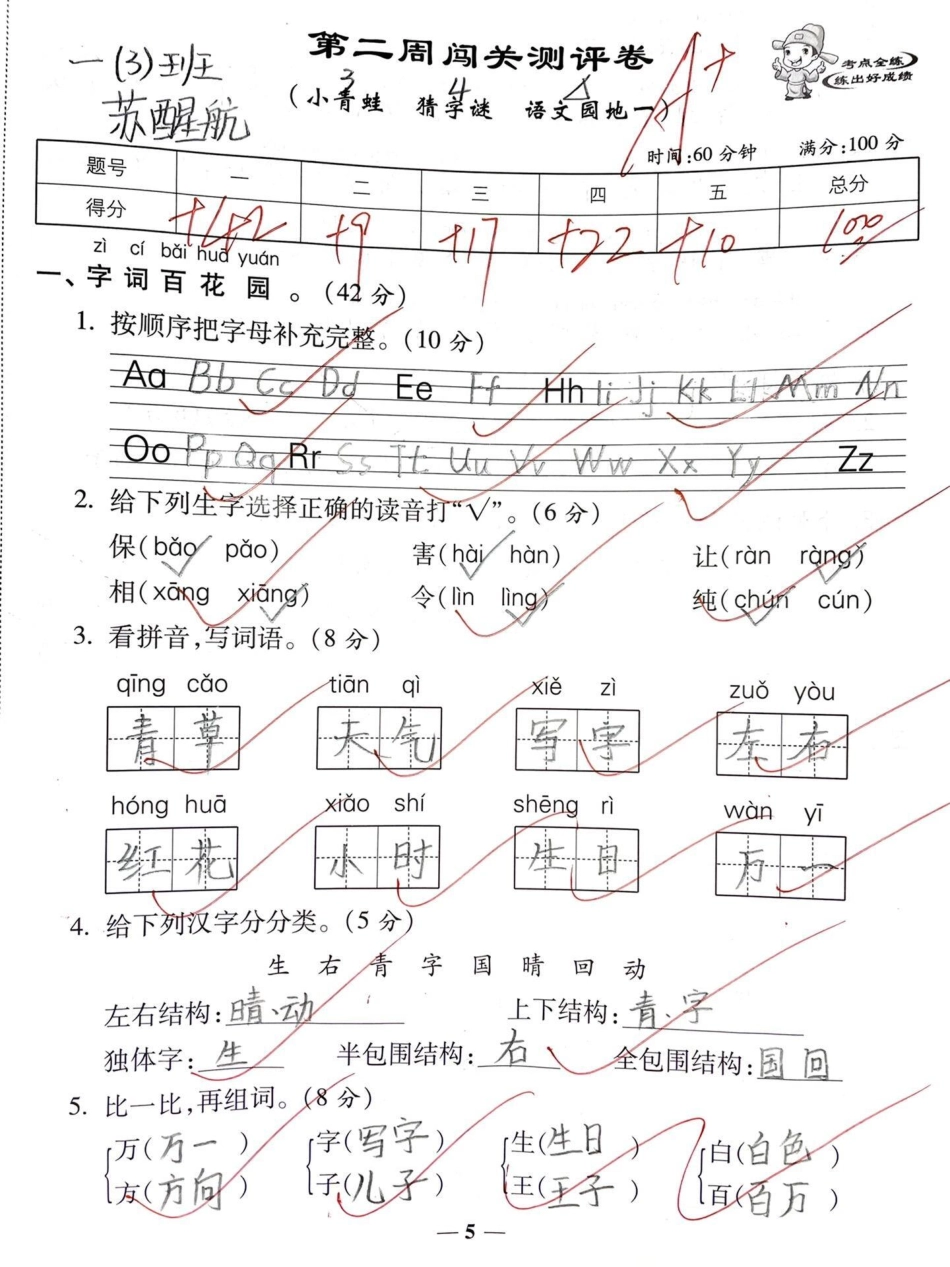 一(3)班
苏醒航
第二周闯关测评卷
A+
考点全练
练出好成绩
3 4
(小青蛙 猜字谜 语文园地一)
时间:60分钟 满分:100分
题号 一 二 三 四 五 总分
得分 +42 +9 +17 +22 +10 100
zì cí bǎi huā yuán
一、字词百花园。(42分)
1. 按顺序把字母补充完整。(10分)
Aa Bb Cc Dd Ee Ff Hh Ii Jj Kk Ll Mm Nn
Oo Pp Qq Rr Ss Tt Uu Vv Ww Xx Yy Zz
2. 给下列生字选择正确的读音打“√”。(6分)
保(bǎo√ pǎo) 害(hài√ hàn) 让(ràn ràng√)
相(xāng xiāng√) 令(lìn lìng√) 纯(chún√ cún)
3. 看拼音,写词语。(8分)
qīng cǎo tiān qì xiě zì zuǒ yòu
青草 天气 写字 左右
hóng huā xiǎo shí shēng rì wàn yī
红花 小时 生日 万一
4. 给下列汉字分分类。(5分)
生 右 青 字 国 晴 回 动
左右结构:晴、动 上下结构:青、字
独体字:生 半包围结构:右 全包围结构:国 回
5. 比一比,再组词。(8分)
万(万一) 字(写字) 生(生日) 白(白色)
方(方向) 子(儿子) 王(王子) 百(百万)
— 5 —